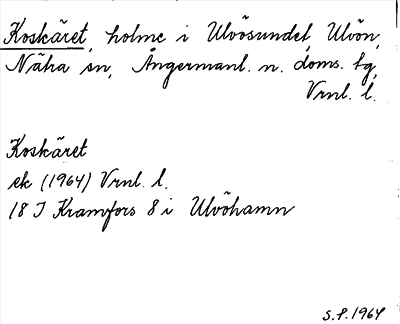 Koskäret, holme i Ulvösundet, Ulvön,
Nätra sn, Ångermanl. n. doms. tg,
Vrnl. l.
Koskäret
ek (1964) Vrnl. l.
18 J Kramfors 8 i Ulvöhamn
S.P. 1964